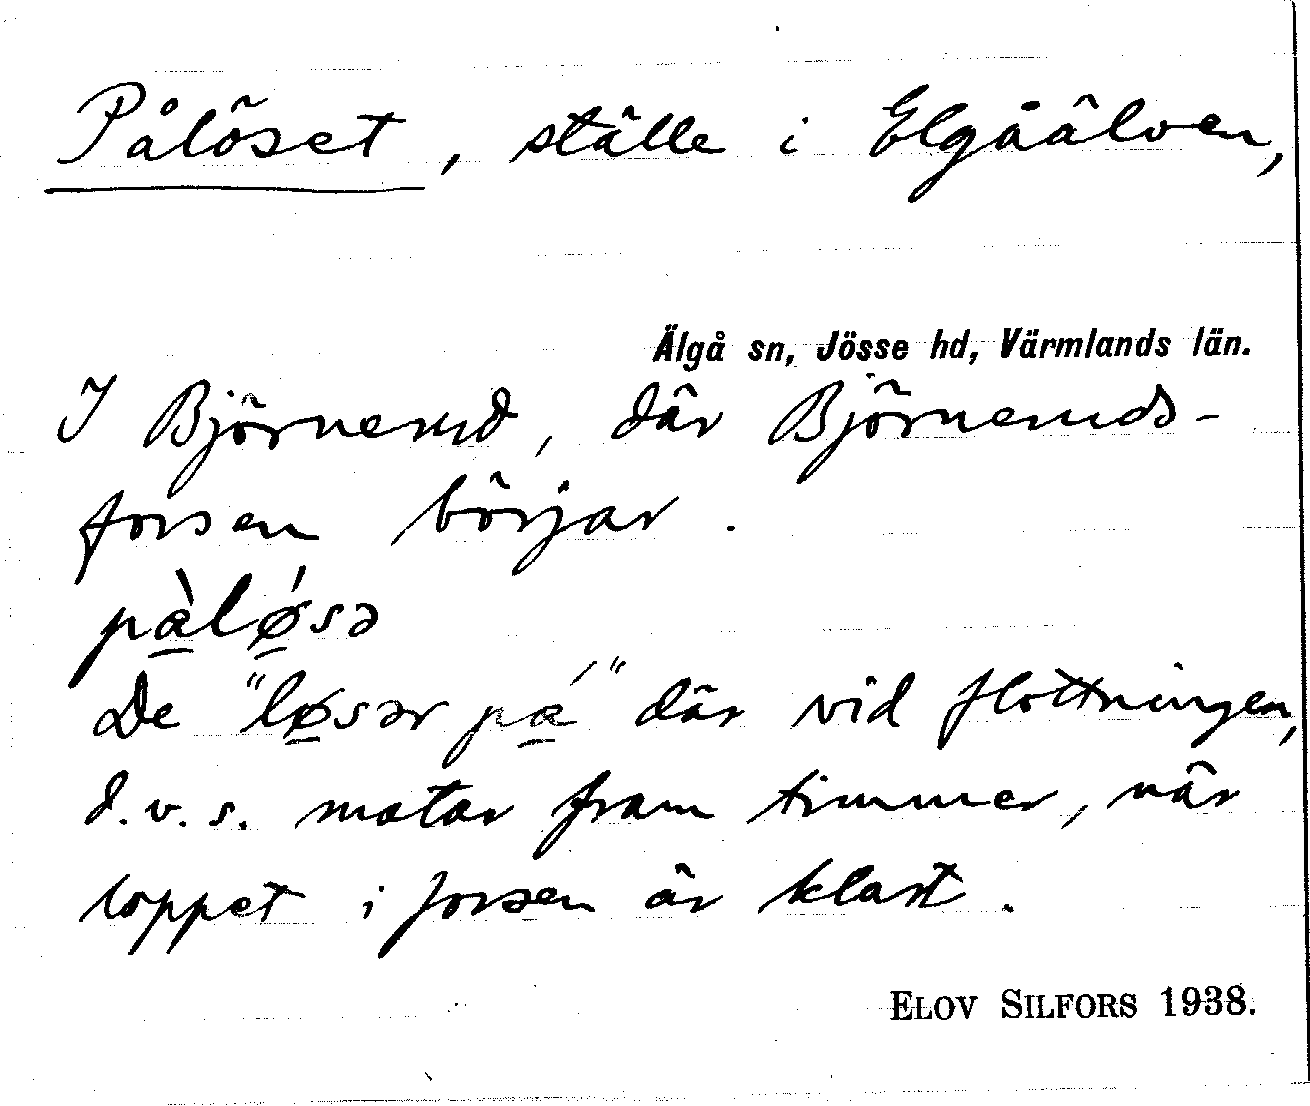 Pålöset, ställe i Elgåälven,
Älgå sn, Jösse hd, Värmlands län.
I Björnerud, där Björneruds-
forsen börjar.
pὰ̲lǿ̲sə
De "lø̲sər pά̲" där vid flottningen,
d.v.s. matar fram timmer, när
loppet i forsen är klart.
ELOV SILFORS 1938.